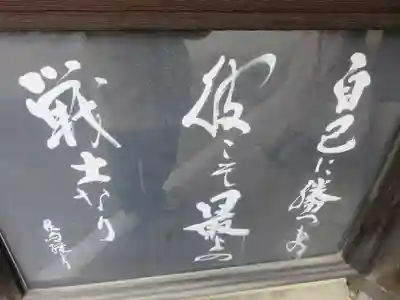 自己に勝つ者
彼こそ最上の
戦士なり